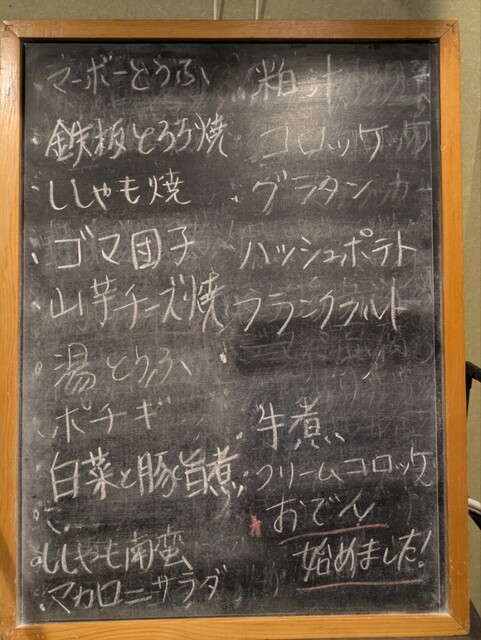 マーボーとうふ
鉄板とろろ焼
ししゃも焼
ゴマ団子
山芋チーズ焼
湯とうふ
ポテギ
白菜と豚旨煮
ししゃも南蛮
マカロニサラダ
粕汁
コロッケ
グラタン
ハッシュポテト
フランクフルト
牛煮
クリームコロッケ
おでん
始めました!